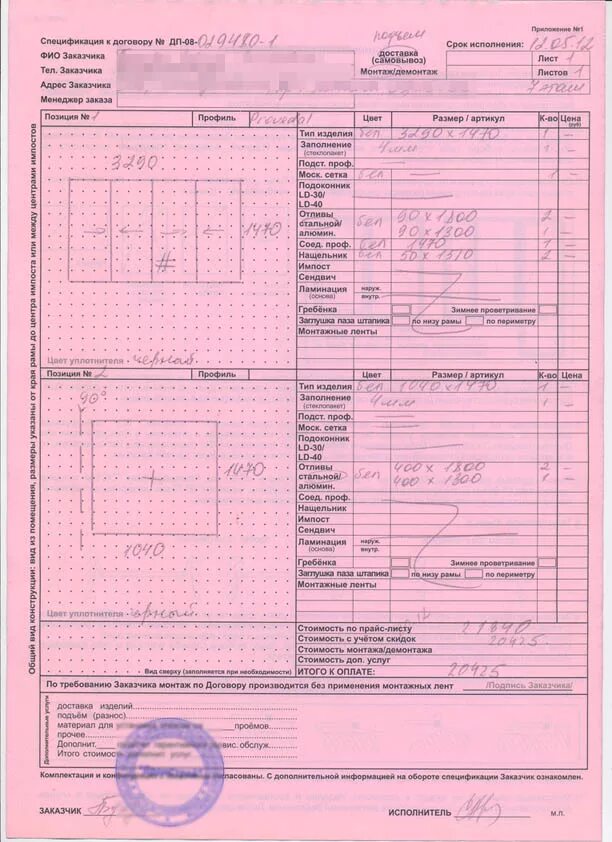 Приложение №1
подъем
Спецификация к договору № ДП-08-029480-1
доставка (самовывоз)
Срок исполнения: 12.05.12
ФИО Заказчика
Лист 1
Тел. Заказчика
Монтаж/демонтаж
Листов 1
Адрес Заказчика
7 этаж
Менеджер заказа
Позиция № 1 Профиль Provedal Цвет Размер / артикул К-во Цена (руб)
Тип изделия бел 3290 x 1470 1 –
Заполнение (стеклопакет) 4мм 1 –
Подст. проф. —
Моск. сетка бел — 1 –
Подоконник LD-30/ LD-40 —
Отливы стальной/ алюмин. бел 90 x 1800 2 –
90 x 1300 1 –
Соед. проф. бел 1970 1 –
Нащельник бел 50 x 1510 2 –
Импост
Сендвич
Ламинация (основа) наруж. внутр.
Гребёнка Зимнее проветривание
Заглушка паза штапика по низу рамы по периметру
Монтажные ленты
3290
1470
Цвет уплотнителя черная
Позиция № 2 Профиль Цвет Размер / артикул К-во Цена
Тип изделия бел 1040 x 1470 1 –
Заполнение (стеклопакет) 4мм 1 –
Подст. проф. —
Моск. сетка —
Подоконник LD-30/ LD-40 —
Отливы стальной/ алюмин. бел 400 x 1800 2 –
400 x 1300 1 –
Соед. проф.
Нащельник
Импост
Сендвич
Ламинация (основа) наруж. внутр.
Гребёнка Зимнее проветривание
Заглушка паза штапика по низу рамы по периметру
Монтажные ленты
90°
1470
1040
Цвет уплотнителя черный
Общий вид конструкции: вид из помещения, размеры указаны от края рамы до центра импоста или между центрами импостов
Стоимость по прайс-листу 21840
Стоимость с учётом скидок 20425
Стоимость монтажа/демонтажа
Стоимость доп. услуг
Вид сверху (заполняется при необходимости)
ИТОГО К ОПЛАТЕ: 20425
По требованию Заказчика монтаж по Договору производится без применения монтажных лент /Подпись Заказчика/
Дополнительные услуги
доставка изделий
подъём (разнос)
материал для проёмов
прочее
Дополнит. сервис. обслуж.
Итого стоимость дополнит. услуг
Комплектация и согласованы. С дополнительной информацией на обороте спецификации Заказчик ознакомлен.
ЗАКАЗЧИК
ИСПОЛНИТЕЛЬ
М.П.